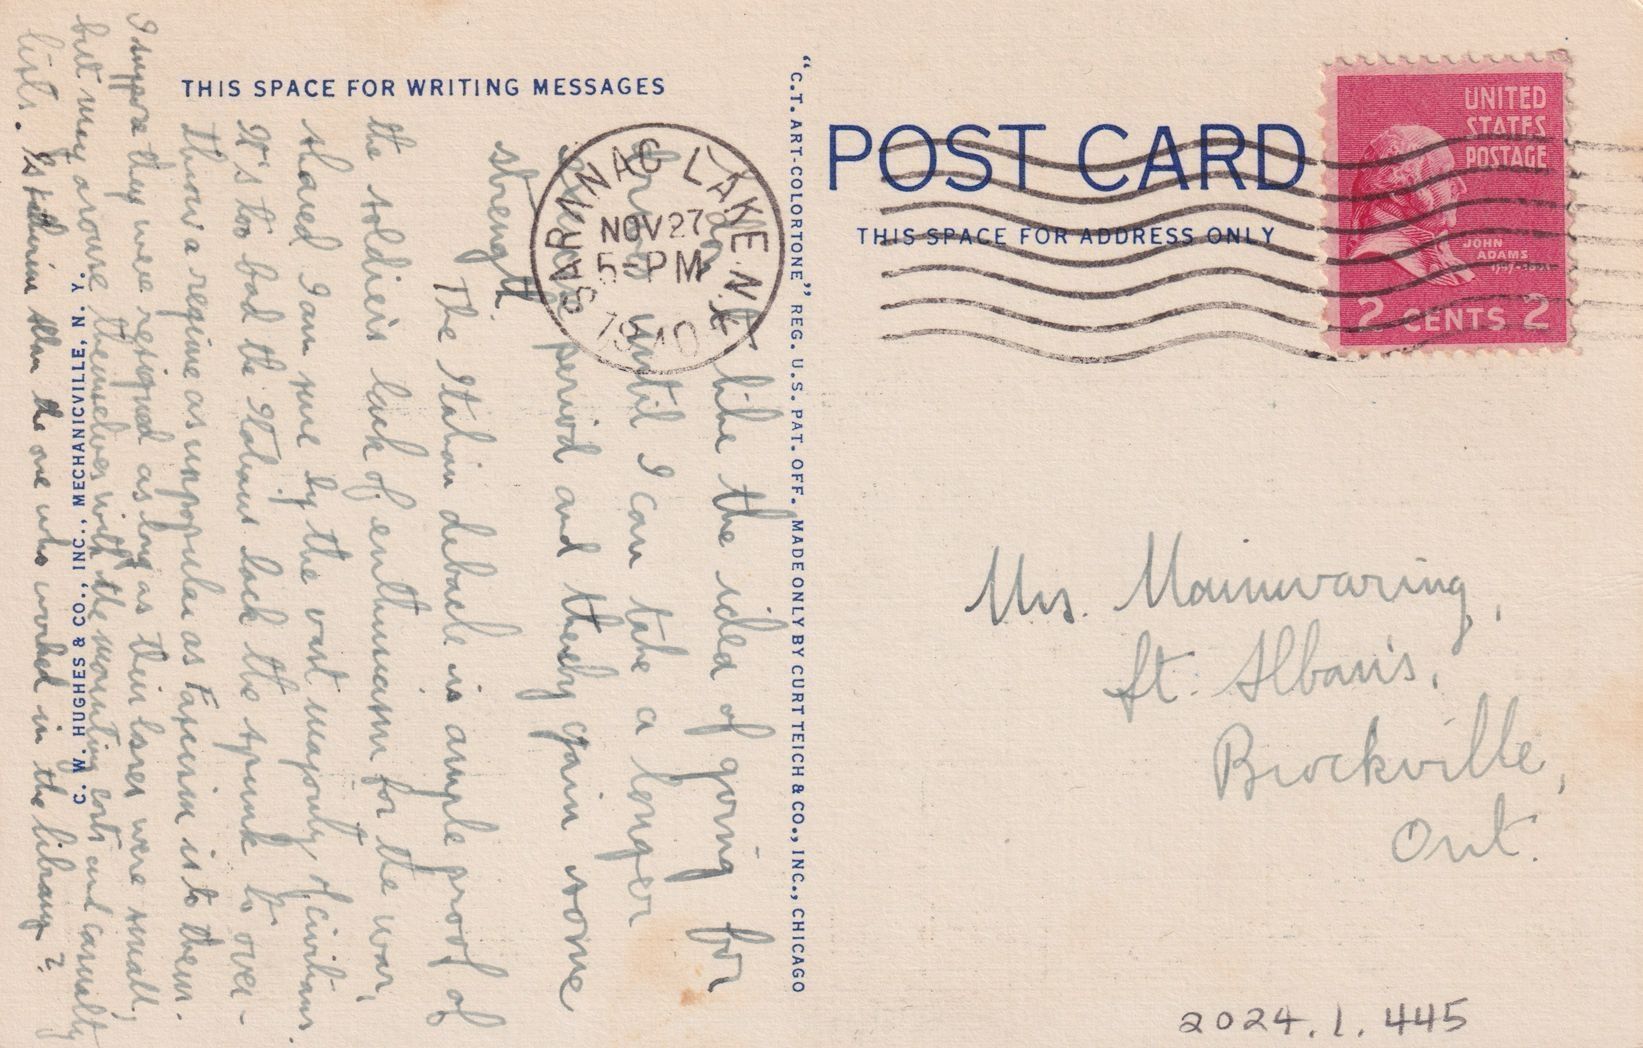 THIS SPACE FOR WRITING MESSAGES
I do not like the idea of going for
until I can take a longer
period and thereby gain some
strength.
The Italian debacle is ample proof of
the soldiers lack of enthusiasm for the war,
shared I am sure by the vast majority of civilians.
It's too bad the Italians lack the spunk to over-
throw a regime as unpopular as Fascism is to them.
I suppose they were resigned as long as their losses were small,
but may arouse themselves with the mounting costs and casualty
lists. Is Katherine Allen the one who worked in the library?
C. W. HUGHES & CO., INC., MECHANICVILLE, N. Y.
SARANAC LAKE N.Y.
NOV 27
5-PM
1940
"C.T. ART-COLORTONE" REG. U.S. PAT. OFF. MADE ONLY BY CURT TEICH & CO., INC., CHICAGO
POST CARD
THIS SPACE FOR ADDRESS ONLY
UNITED
STATES
POSTAGE
JOHN
ADAMS
2 CENTS 2
Mrs. Mainwaring,
St. Alban's,
Brockville,
Ont.
2024.1.445